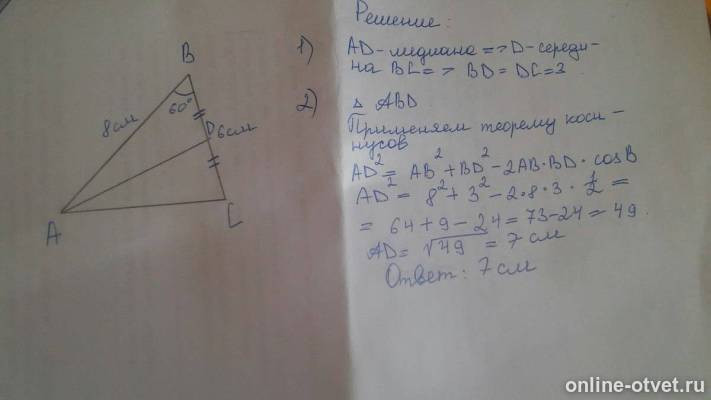 Решение:
1) AD-медиана => D-середи-
на BC => BD = DC = 3
2) △ ABD
Применяем теорему коси-
нусов
AD² = AB² + BD² - 2AB·BD·cosB
AD² = 8² + 3² - 2·8·3·1/2 =
= 64 + 9 - 24 = 73 - 24 = 49
AD = √49 = 7 см
Ответ: 7 см
B
60°
8 см
D 6 см
A
C
online-otvet.ru